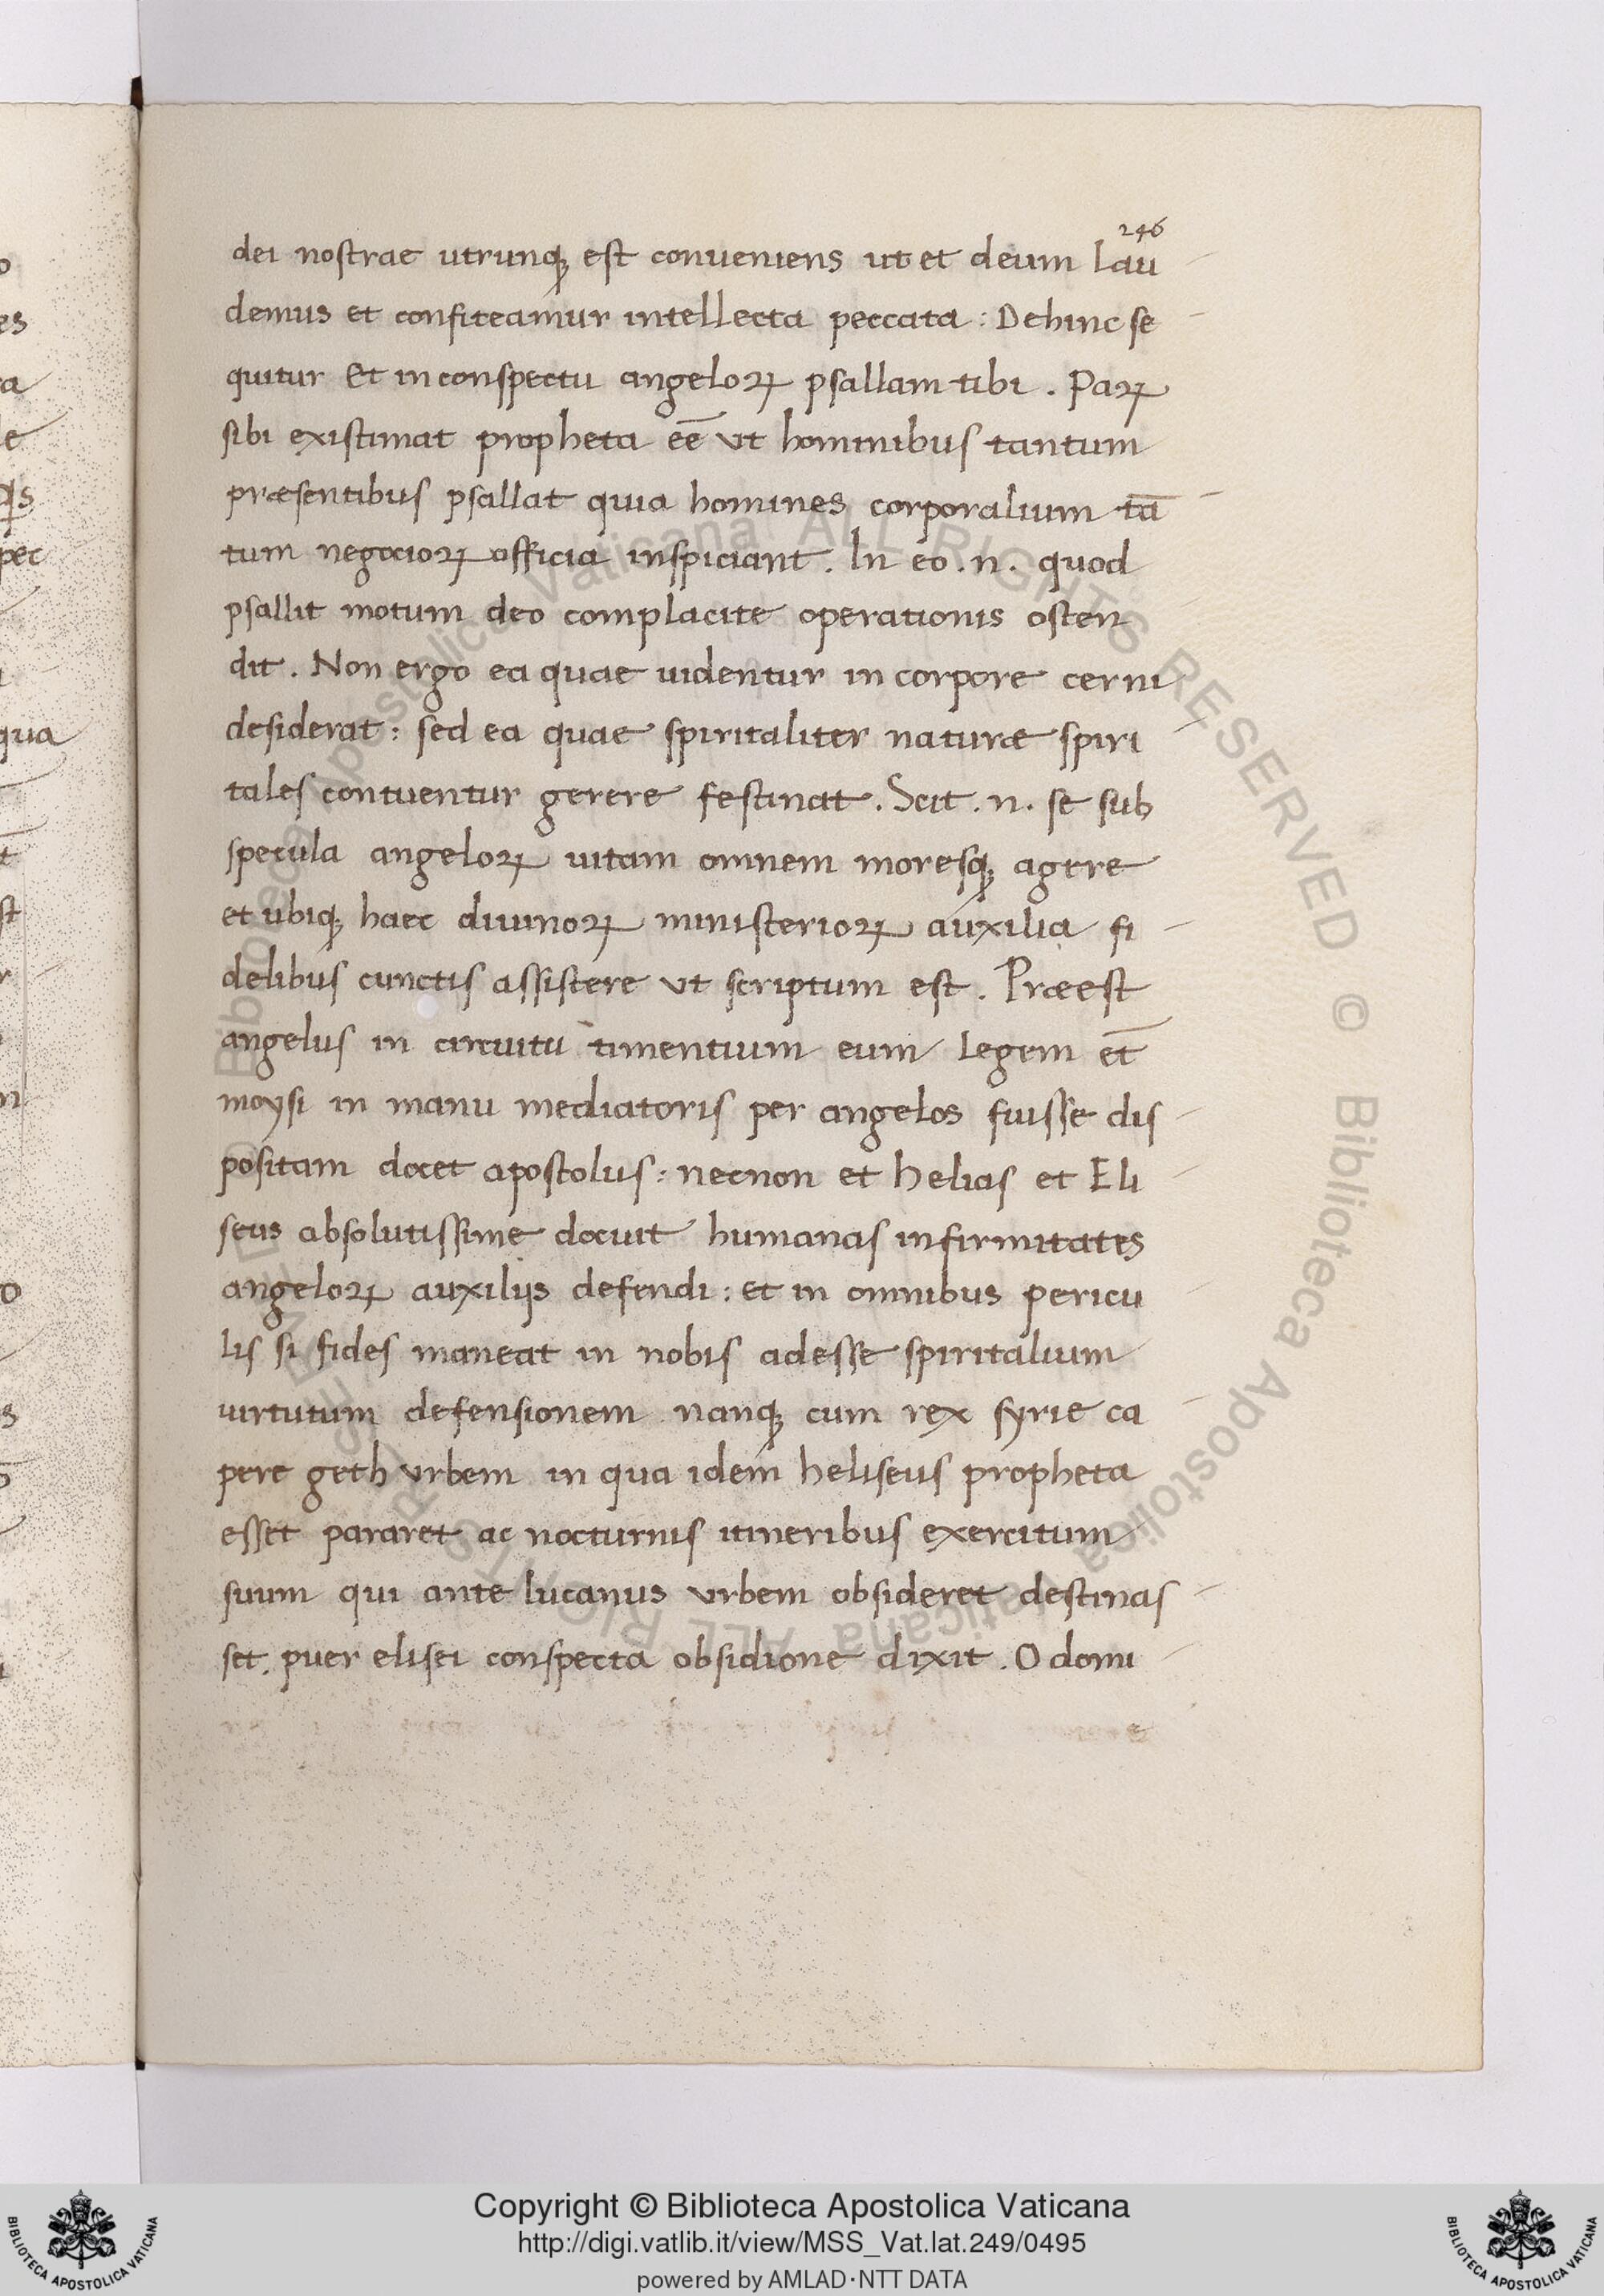 246
dei nostrae utrunq; est conueniens ut et deum lau
demus et confiteamur intellecta peccata : Dehinc se
quitur Et in conspectu angeloꝝ psallam tibi . Paꝝ
sibi existimat propheta eē ut hominibus tantum
præsentibus psallat quia homines corporalium tā
tum negocioꝝ officia inspiciant . In eo . n . quod
psallit motum deo complacite operationis osten
dit . Non ergo ea quae uidentur in corpore cerni
desiderat : sed ea quae spiritaliter naturæ spiri
tales contuentur gerere festinat . Scit . n . se sub
specula angeloꝝ uitam omnem moresq; agere
et ubiq; haec diuinoꝝ ministerioꝝ auxilia fi
delibus cunctis assistere ut scriptum est . Præest
angelus in circuitu timentium eum legem et̄
moysi in manu mediatoris per angelos fuisse dis
positam docet apostolus : necnon et helias et Eli
seus absolutissime docuit humanas infirmitates
angeloꝝ auxilijs defendi : et in omnibus pericu
lis si fides maneat in nobis adesse spiritalium
uirtutum defensionem nanq; cum rex syrie ca
pere geth urbem in qua idem heliseus propheta
esset pararet ac nocturnis itineribus exercitum
suum qui ante lucanus urbem obsideret destinas
set . puer elisei conspecta obsidione dixit . O domi
Copyright © Biblioteca Apostolica Vaticana
http://digi.vatlib.it/view/MSS_Vat.lat.249/0495
powered by AMLAD·NTT DATA
BIBLIOTECA APOSTOLICA VATICANA
BIBLIOTECA APOSTOLICA VATICANA